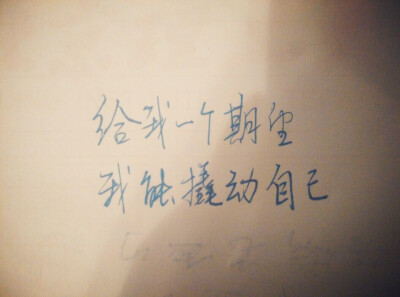 给我一个期望
我能撬动自己